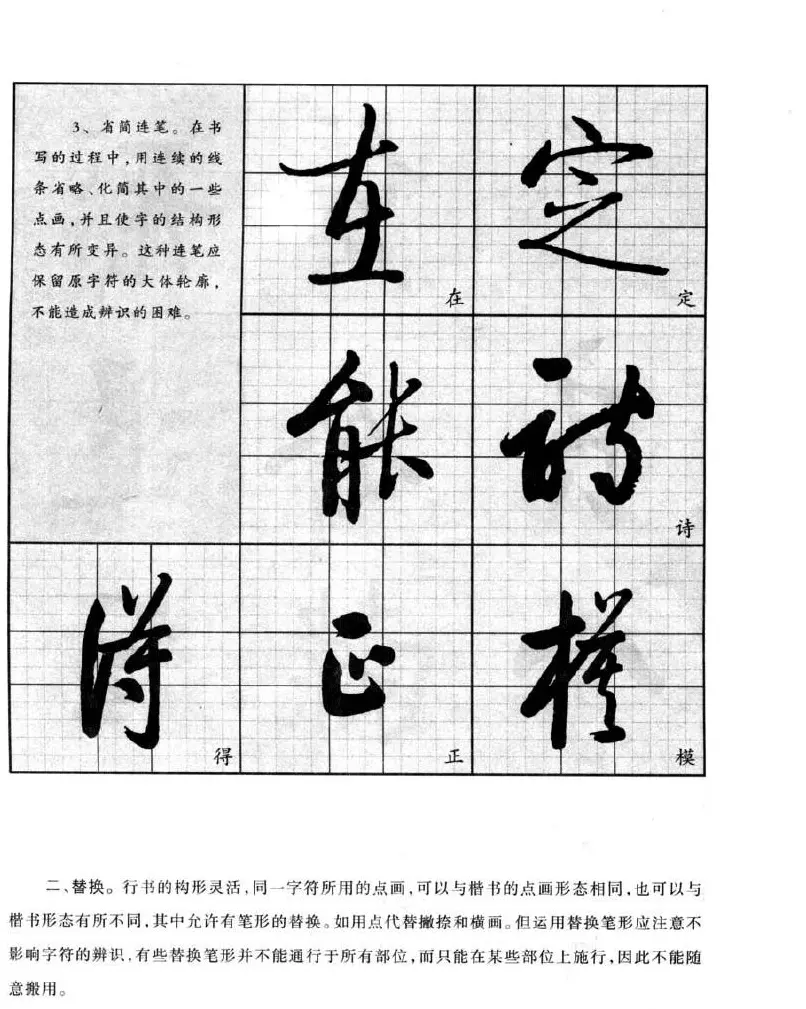 3、省简连笔。在书
写的过程中，用连续的线
条省略、化简其中的一些
点画，并且使字的结构形
态有所变异。这种连笔应
保留原字符的大体轮廓，
不能造成辨识的困难。
在 定
在 定
能 诗
诗
得 正 模
得 正 模
二、替换。行书的构形灵活，同一字符所用的点画，可以与楷书的点画形态相同，也可以与
楷书形态有所不同，其中允许有笔形的替换。如用点代替撇捺和横画。但运用替换笔形应注意不
影响字符的辨识，有些替换笔形并不能通行于所有部位，而只能在某些部位上施行，因此不能随
意搬用。